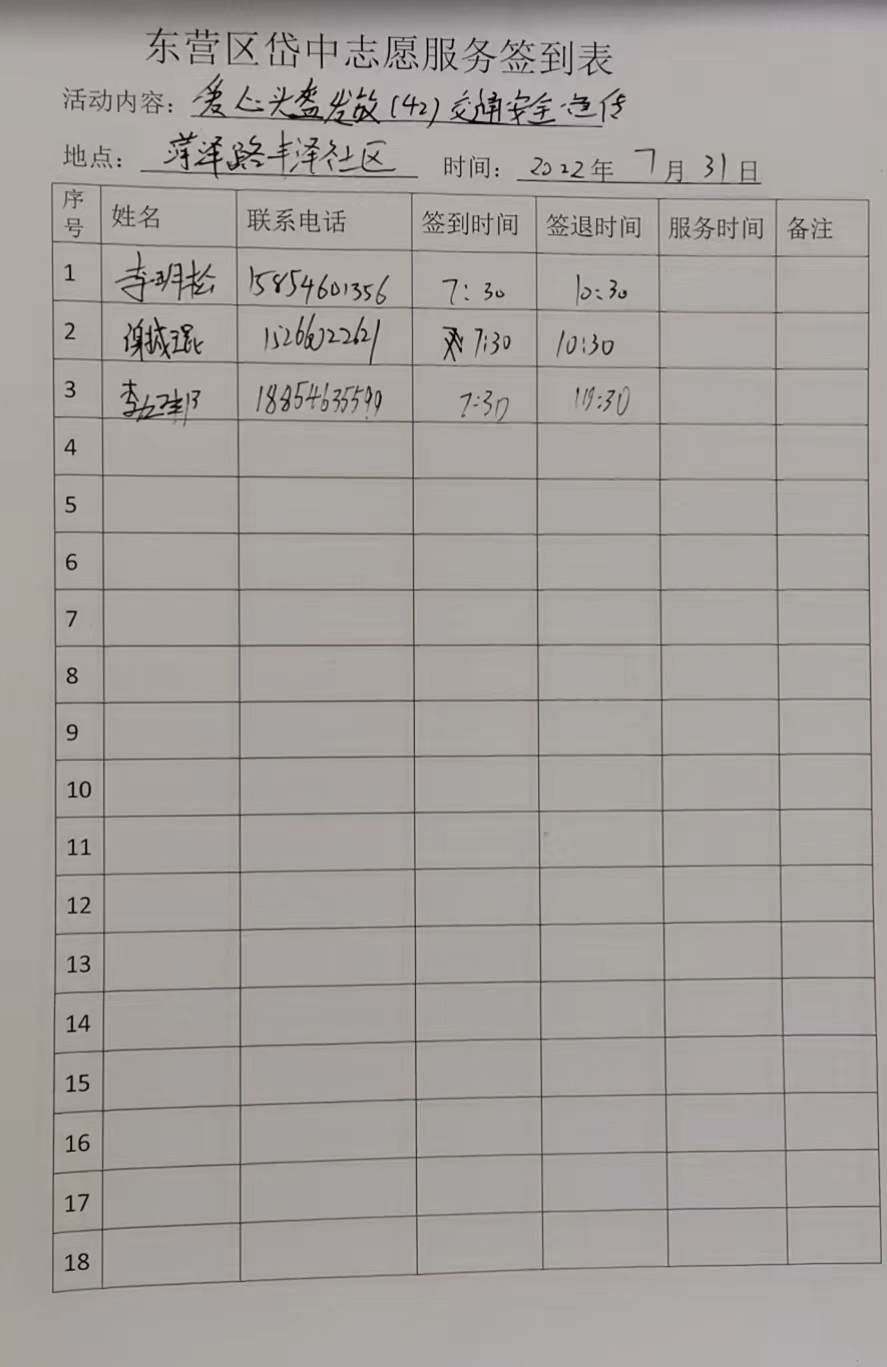 东营区岱中志愿服务签到表
活动内容：爱心头盔发放(42)交通安全宣传
地点：菏泽路丰泽社区 时间：2022年7月31日
序号 姓名 联系电话 签到时间 签退时间 服务时间 备注
1 李明松 15854601356 7:30 10:30
2 7:30 10:30
3 18854635599 7:30 10:30
4
5
6
7
8
9
10
11
12
13
14
15
16
17
18